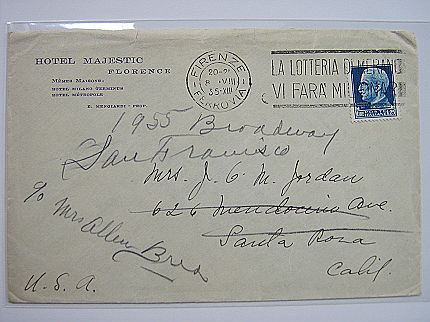 HOTEL MAJESTIC
FLORENCE
MÊMES MAISONS:
HOTEL MILANO TERMINUS
HOTEL MÉTROPOLE
E. MENGIARDI - PROP.
FIRENZE
20-21
8 VIII
35-XIII
FERROVIA
LA LOTTERIA DI MERANO
VI FARA MILIONARI
1955 Broadway
San Francisco
Mrs. J. C. M. Jordan
626 Mendocino Ave.
Santa Rosa
Calif.
c/o Mrs Allen
U.S.A.